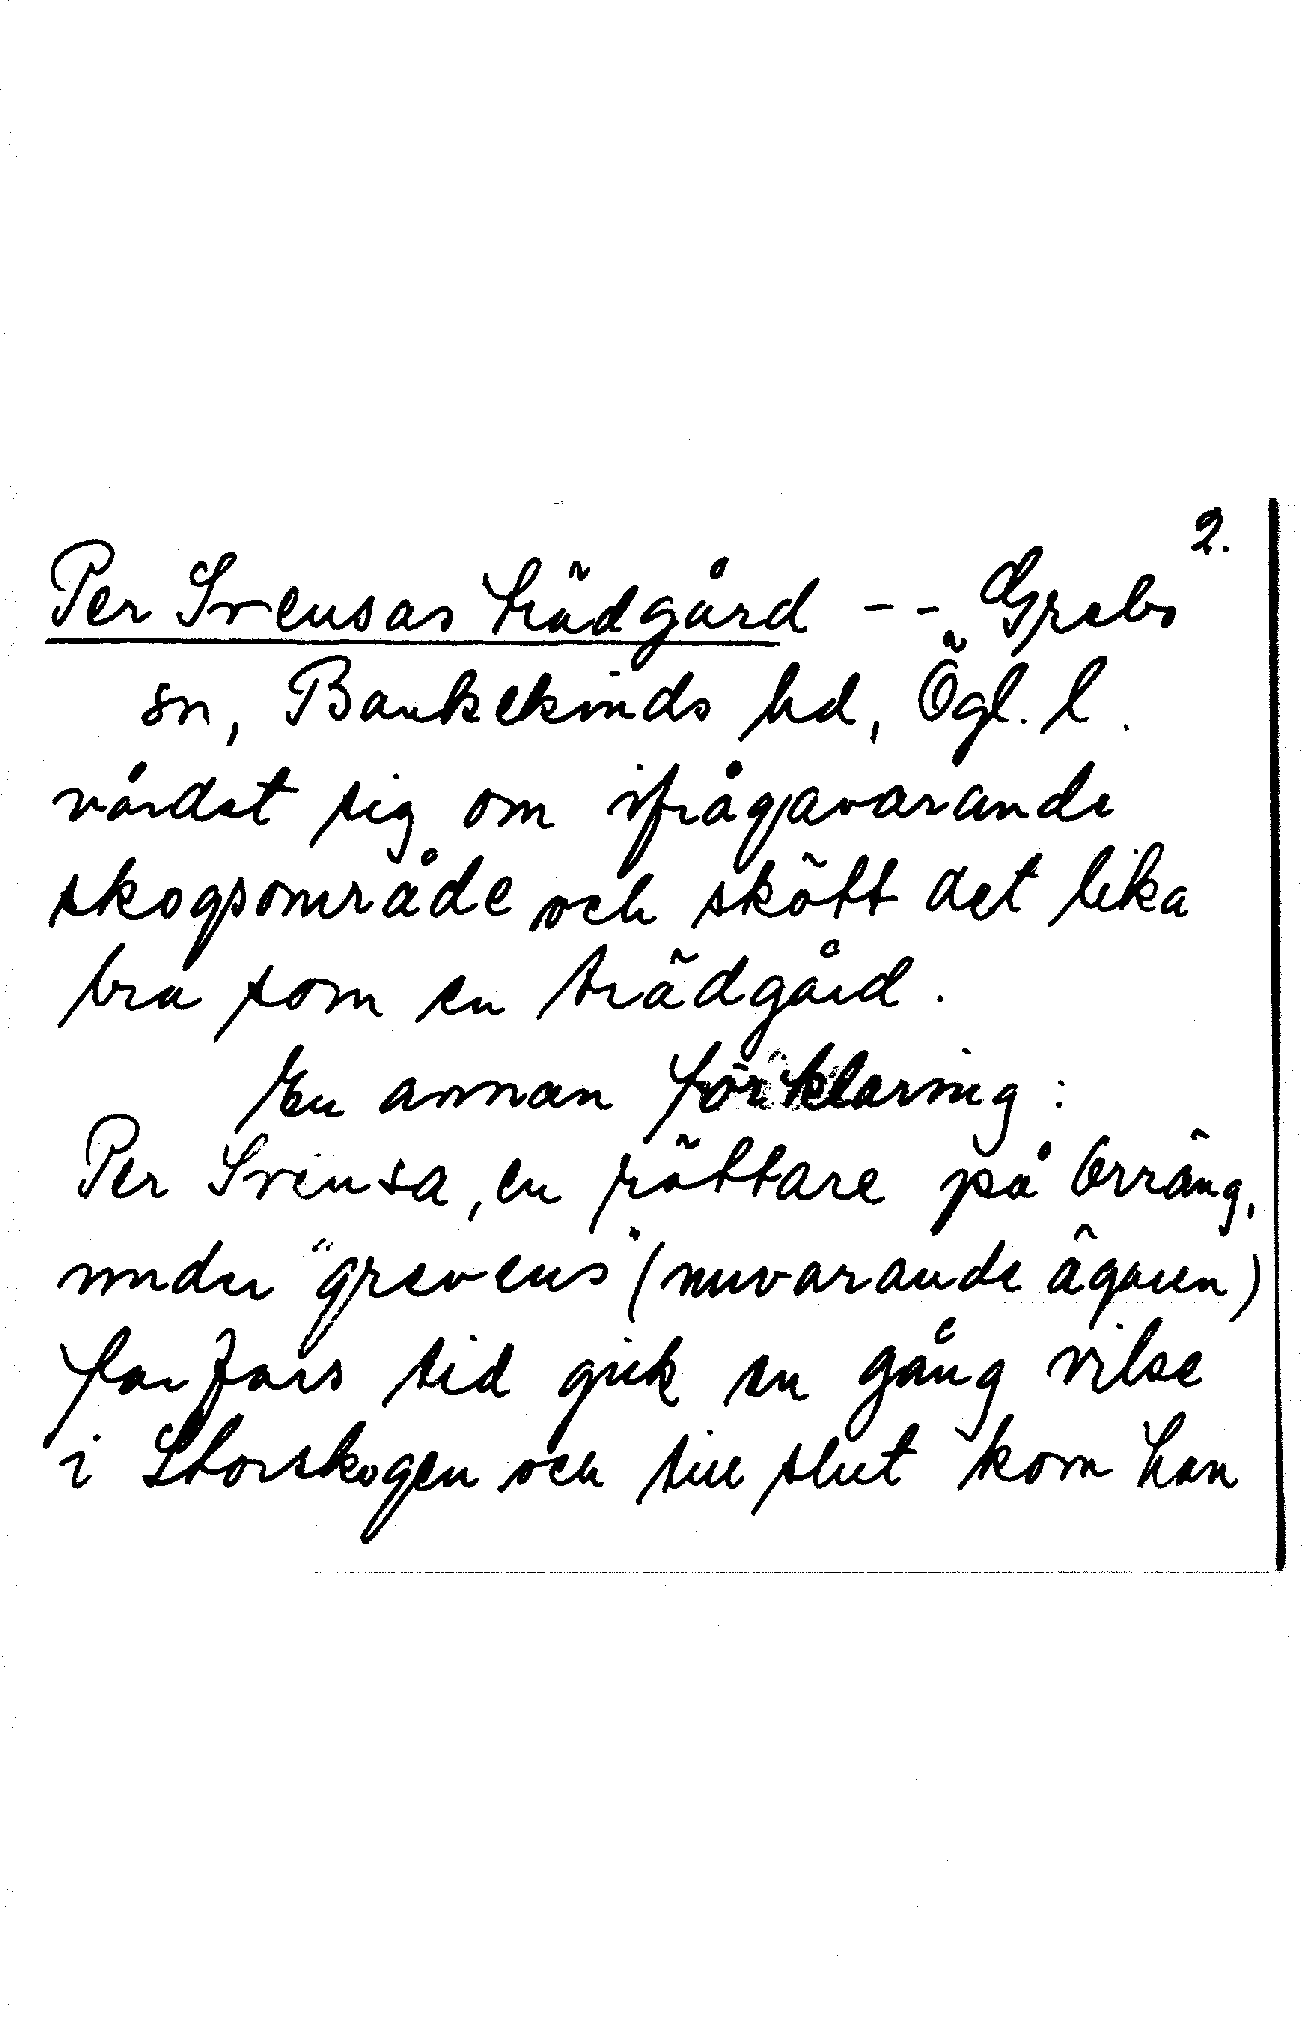 2.
Per Svensas trädgård -- Grebo
sn, Bankekinds hd, Ögl. l.
vårdat sig om ifrågavarande
skogsområde och skött det lika
bra som en trädgård.
En annan förklaring:
Per Svensa, en rättare på Orräng,
under "grevens" (nuvarande ägaren)
farfars tid gick en gång vilse
i Storskogen och till slut kom han